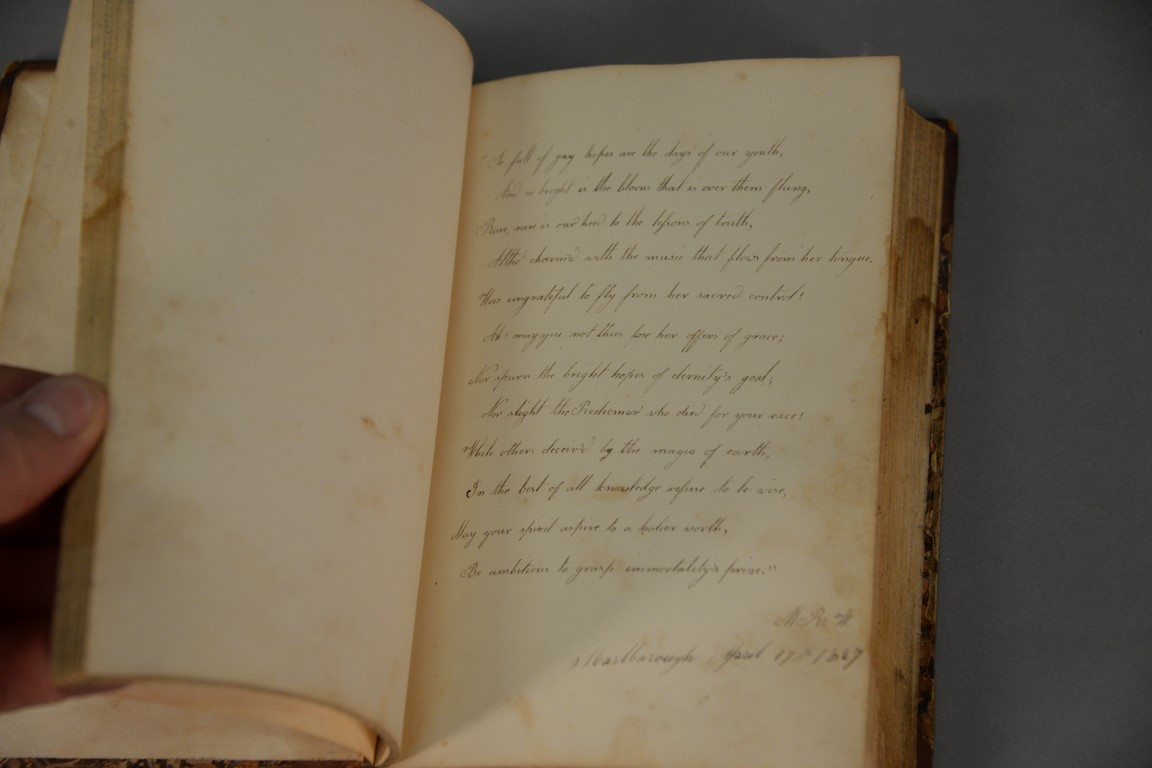 "So full of gay hopes are the days of our youth,
And so bright is the bloom that is over them flung,
Rare, rare is our heed to the lessons of truth,
Altho' charm'd with the music that flows from her tongue.
How ungrateful to fly from her sacred control!
Ah! may you not thus lose her offers of grace;
Nor spurn the bright hopes of eternity's goal,
Nor slight the Redeemer who died for your race!
While others deceiv'd by the magic of earth,
In the best of all knowledge refuse to be wise,
May your spirit aspire to a holier worth,
Be ambitious to grasp immortality's prize."
Marlborough April 17th 1827